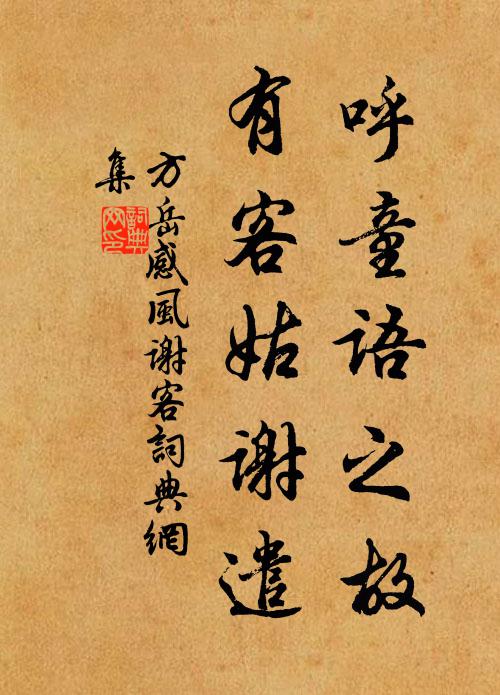 呼童語之故
有客姑謝遣
方岳感風謝客詞典網
集
詞典
网印